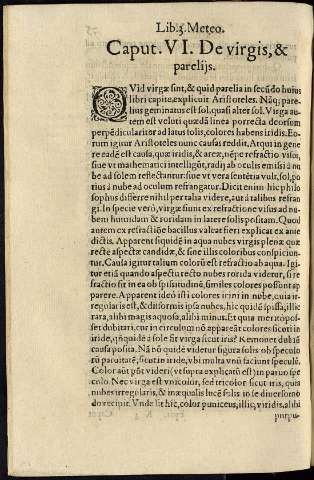 Lib. 3. Meteo.
Caput. VI. De virgis, &
parelijs.
QVid virgæ sint, & quid parelia in secūdo huius
libri capite, explicuit Aristoteles. Nāq; pare-
lius geminatus est sol, quasi alter sol. Virga au-
tem est veluti quædā linea porrecta deorsum
perpēdicularitor ad latus solis, colores habens iridis. Eo-
rum igitur Aristoteles nunc causas reddit. Atqui in gene
re eadē est causa, quæ iridis, & areæ, nēpe refractio visus,
siue vt mathematici intelligūt, radij ab oculis emissi à nu
be ad solem reflectantur: siue vt vera sentētia vult, sol po
tius à nube ad oculum refrangatur. Dicit enim hic philo
sophus differre nihil per talia videre, aut à talibus refran
gi. In specie verò, virgæ fiunt ex refractione visus ad nu-
bem humidam & roridam in latere solis positam. Quod
autem ex refractiōe bacillus valeat fieri explicat ex ante
dictis. Apparent siquidē in aqua nubes virgis plenæ quæ
rectè aspectæ candidæ, & sine illis coloribus conspiciun-
tur. Causa igitur talium colorū est refractio ab aqua. Igi-
tur etiā quando aspectu recto nubes rorida videtur, si re-
fractio sit in ea ob spissitudinē, similes colores possunt ap
parere. Apparent ideò isti colores irini in nube, cuia ir-
regularis est, & difformis ipsa nubes, hic quidē spissa, illic
rara, alibi magis aquosa, alibi minus. Et quia meritò pos-
set dubitari, cur in circulum nō appareāt colores sicuti in
iride, qñquidē à sole fit virga sicut iris? Remouet dubiū
causa posita. Nā nō quidē videtur figura solis ob speculo
rū paruitatē, sicut in iride, vbi multa vnū faciunt speculū.
Color aūt pōt videri (vt supra explicatū est) in paruo spe
culo. Nec virga est vnicolor, sed tricolor sicut iris, quia
nubes irregularis, & inæqualis lucē solis in se diuersimo-
do recipit. Vnde fit hic, color puniceus, illic, viridis, alibi
purpu-